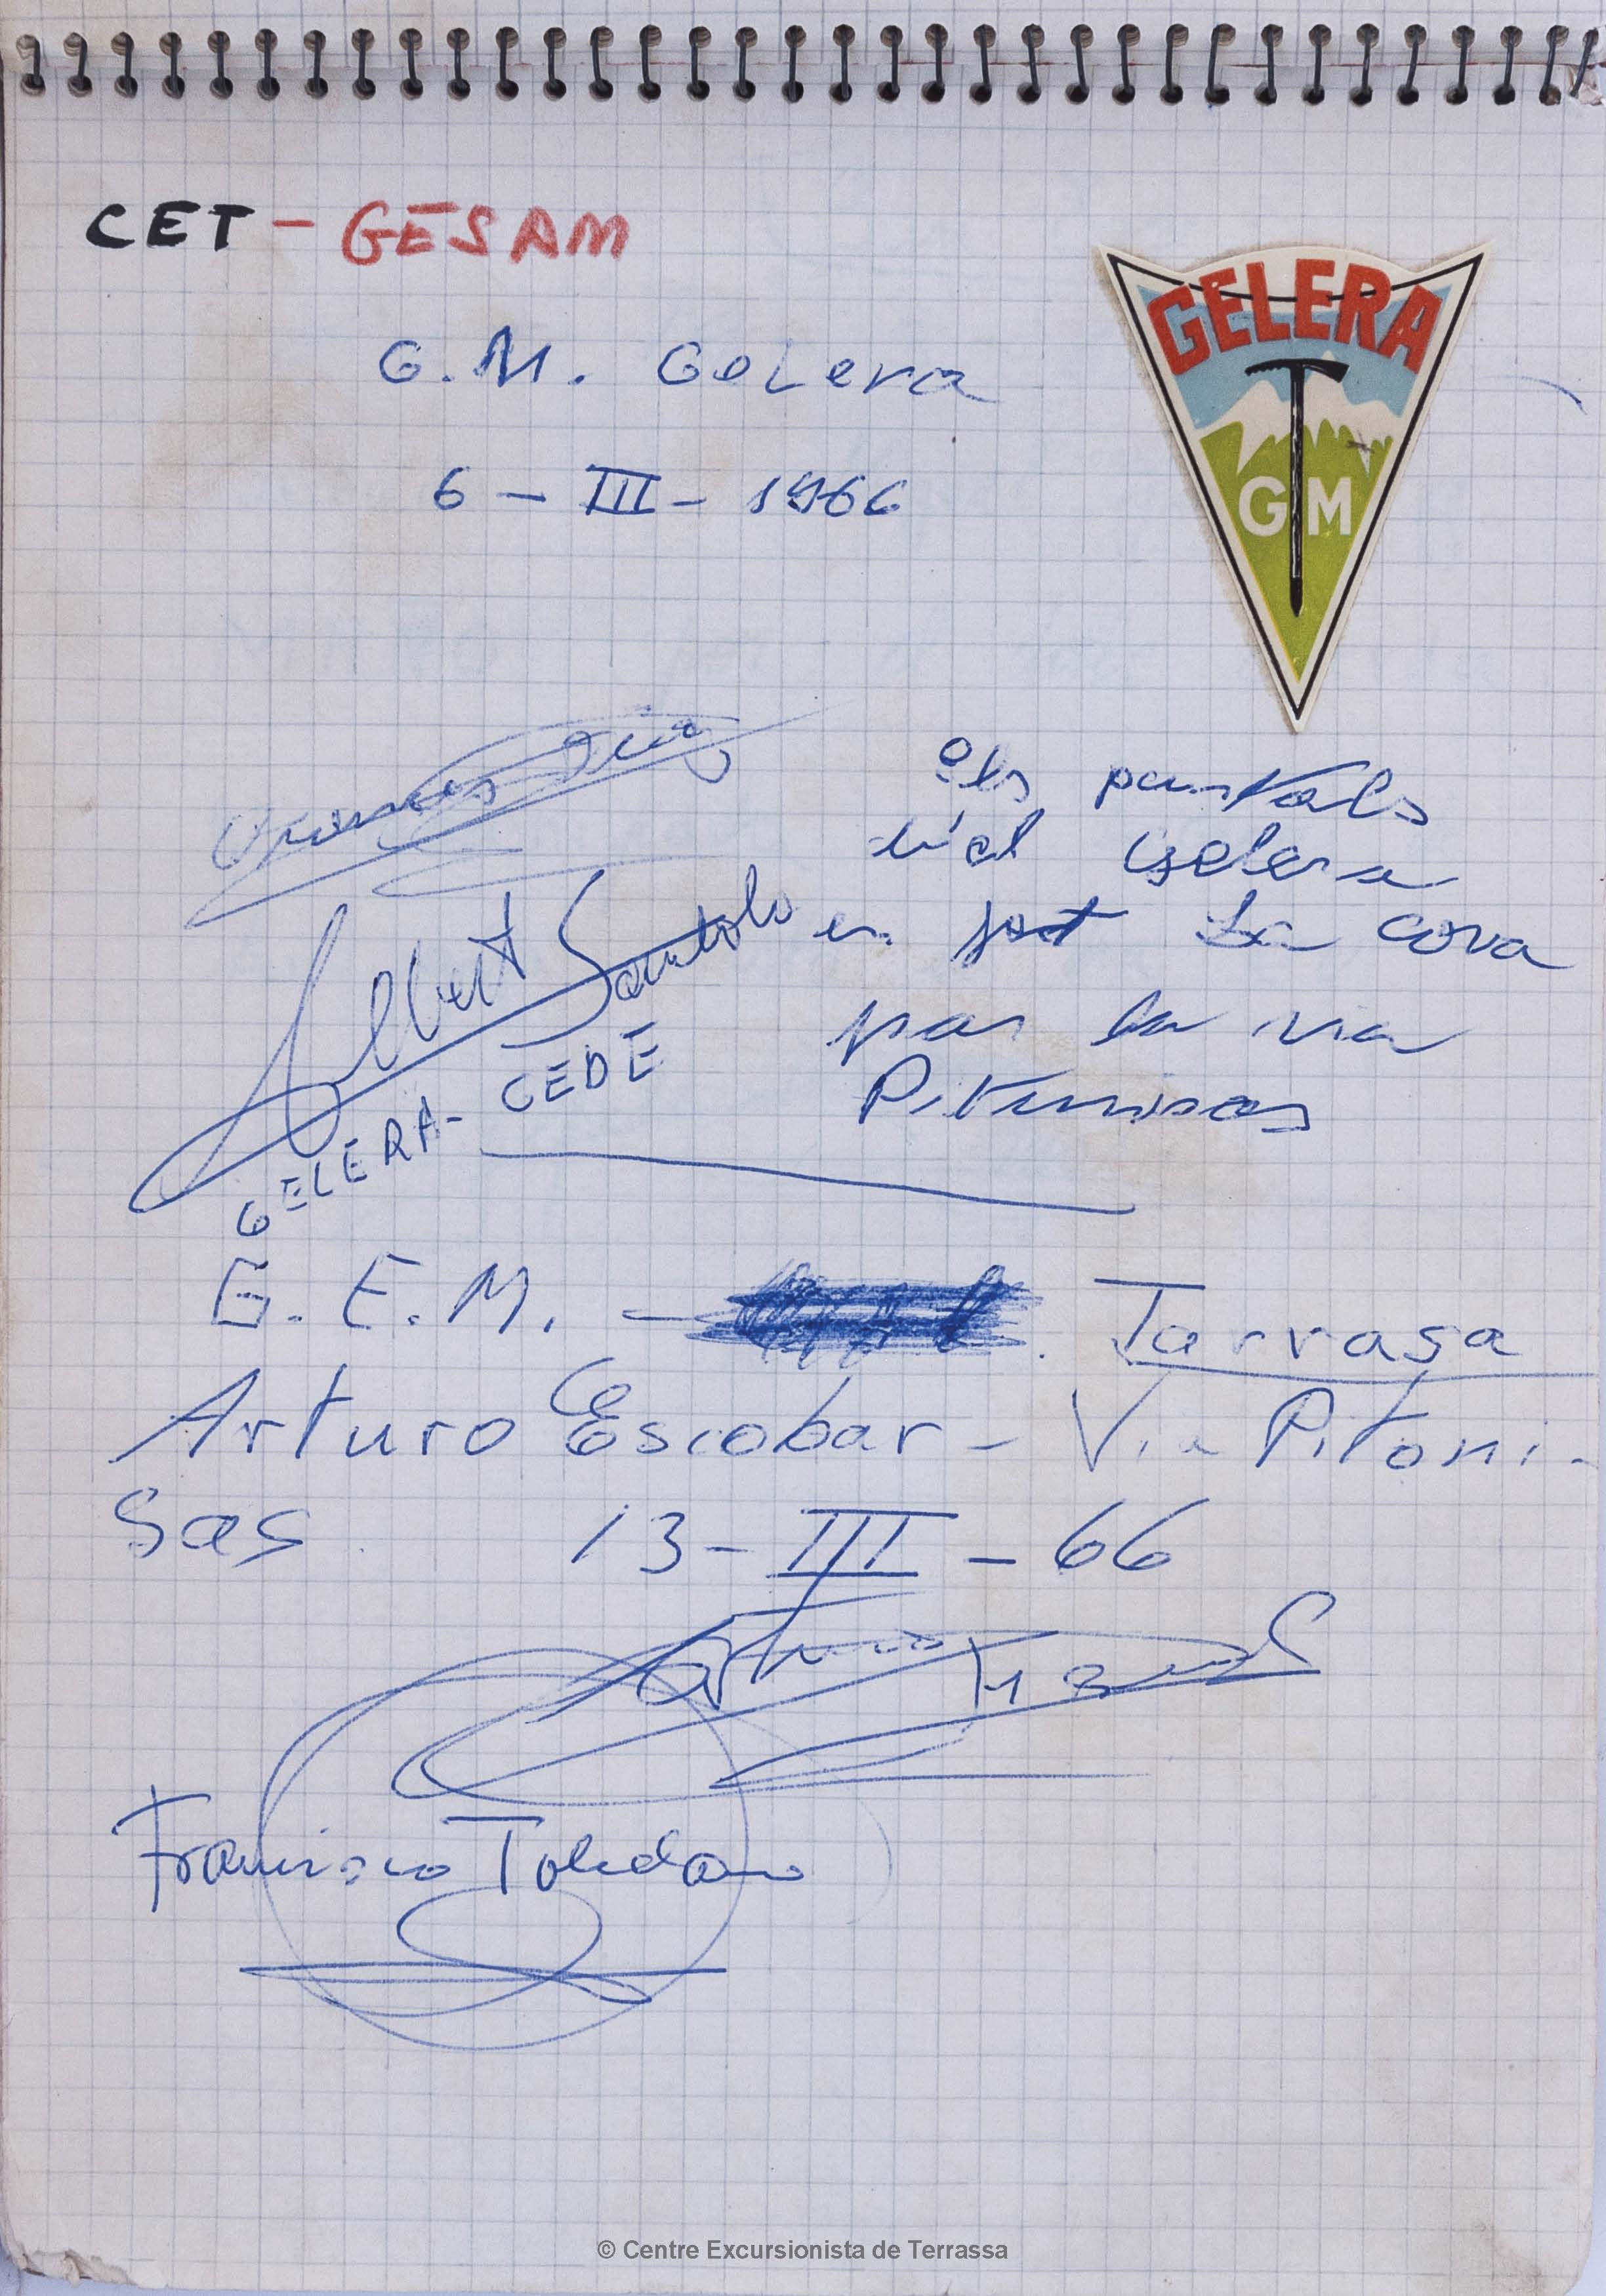 CET - GESAM
GELERA
G M
G. M. Gelera
6 - III - 1966
els puntals
del Gelera
en la cova
per la via
Pitunisas
Albert Santolo
GELERA - CEDE
G. E. M. - Tarrasa
Arturo Escobar - Via Pitoni-
sas 13 - III - 66
Francisco Toledano
© Centre Excursionista de Terrassa